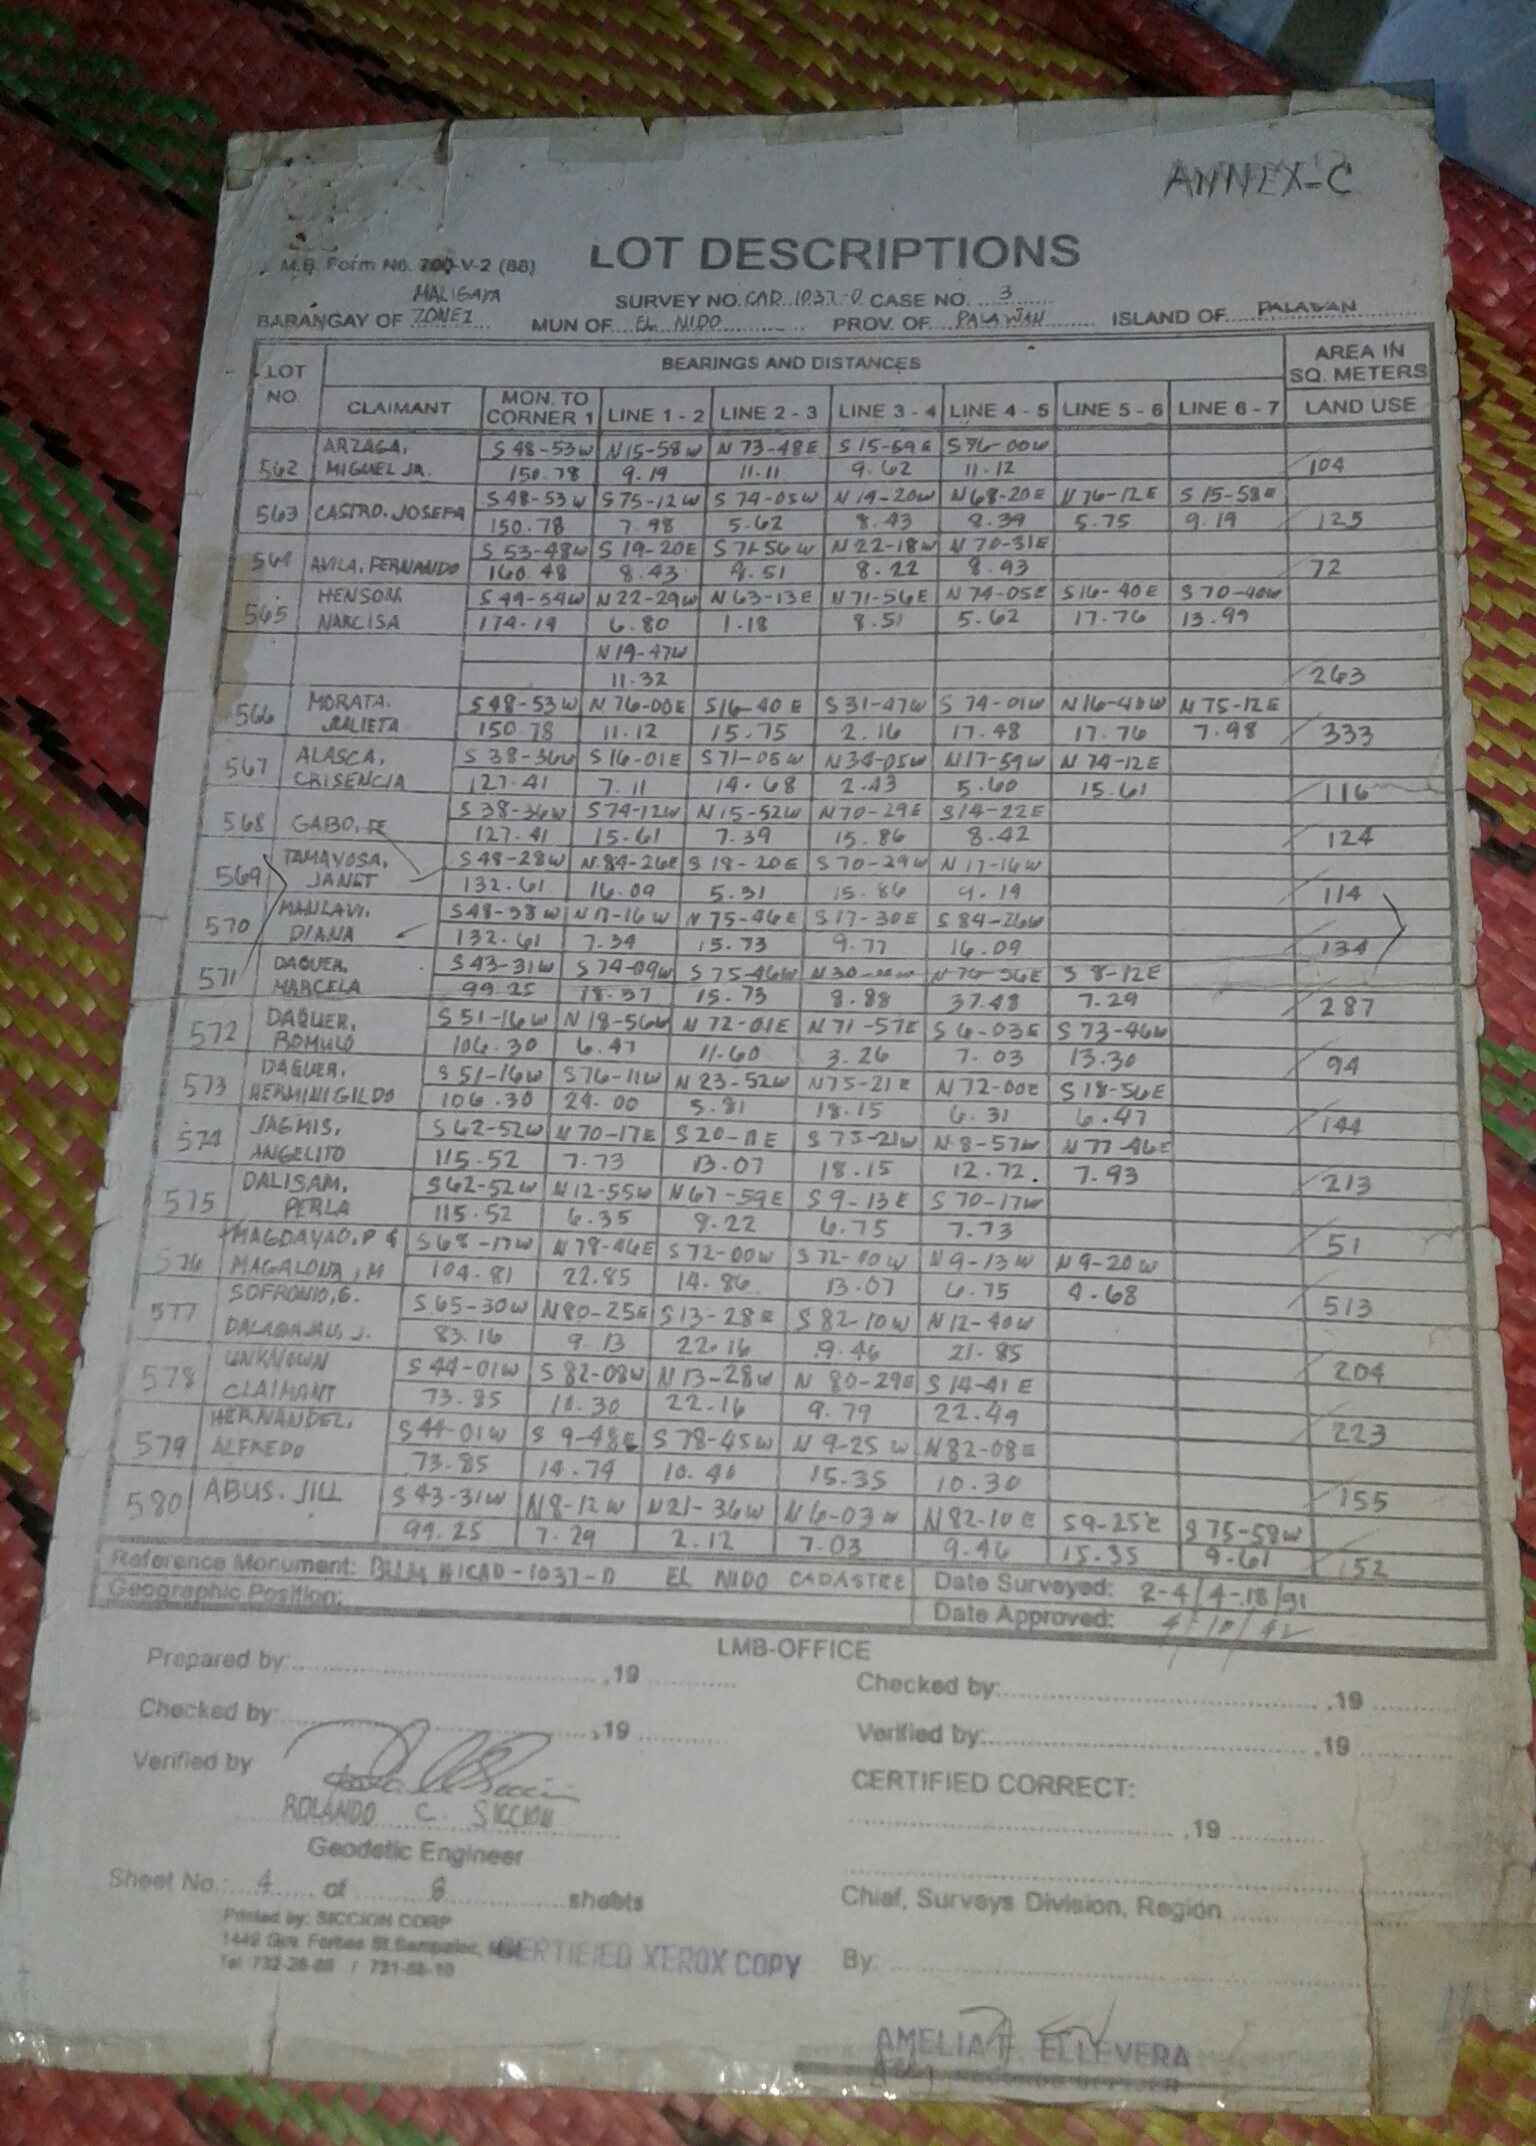 ANNEX-C
M.B. Form No. 700-V-2 (88) LOT DESCRIPTIONS
MALIGAYA
SURVEY NO. CAD 1037-D CASE NO. 3
BARANGAY OF ZONE 1 MUN OF EL NIDO PROV. OF PALAWAN ISLAND OF PALAWAN
LOT NO. CLAIMANT BEARINGS AND DISTANCES AREA IN SQ. METERS
MON. TO CORNER 1 LINE 1 - 2 LINE 2 - 3 LINE 3 - 4 LINE 4 - 5 LINE 5 - 6 LINE 6 - 7 LAND USE
ARZAGA, S 48-53W N15-58W N 73-48E S15-59E S76-00W
562 MIGUEL JR. 150.78 9.19 11.11 9.62 11.12 104
S48-53W S75-12W S 74-05W N19-20W N68-20E N76-12E S 15-58E
563 CASTRO, JOSEFA 150.78 7.98 5.62 8.43 8.39 5.75 9.19 125
S 53-48W S 19-20E S71-56W N22-18W N 70-31E
564 AVILA, FERNANDO 160.48 8.43 8.51 8.22 8.93 72
HENSON, S49-54W N22-29W N63-13E N71-56E N74-05E S16-40E S 70-40W
565 NARCISA 174.19 6.80 1.18 8.51 5.62 17.76 13.99
N19-47W
11.32 263
MORATA, S48-53W N 76-00E S16-40E S31-47W S 74-01W N16-40W N 75-12E
566 JULIETA 150.78 11.12 15.75 2.16 17.48 17.76 7.98 333
ALASCA, S 38-36W S16-01E S71-05W N34-05W N17-59W N 74-12E
567 CRISENCIA 127.41 7.11 14.68 2.43 5.60 15.61 116
S38-36W S74-12W N15-52W N70-29E S14-22E
568 GABO, FE 127.41 15.61 7.39 15.86 8.42 124
TAMAYOSA, S48-28W N.84-26E S 18-20E S 70-29W N 17-16W
569 JANET 132.61 16.09 5.31 15.86 9.19 114
MAULAVI, S48-38W N17-16W N 75-46E S17-30E S84-26W
570 DIANA 132.61 7.34 15.73 9.77 16.09 134
DAQUER, S43-31W S74-09W S75-46W N 76-56E S 8-12E
571 MARCELA 99.25 18.37 15.73 8.88 37.48 7.29 287
DAQUER, S51-16W N18-56W N72-01E N71-57E S6-03E S73-46W
572 ROMULO 106.30 6.47 11.60 3.26 7.03 13.30 94
DAQUER, S51-16W S76-11W N 23-52W N75-21E N72-00E S18-56E
573 HERMINIGILDO 106.30 24.00 5.81 18.15 6.31 6.47 144
JAGMIS, S62-52W N70-17E S20-11E S75-21W N.8-57W N77-46E
574 ANGELITO 115.52 7.73 13.07 18.15 12.72. 7.93 213
DALISAM, S62-52W N12-55W N67-59E S 9-13E S 70-17W
575 PERLA 115.52 6.35 8.22 6.75 7.73 51
MAGDAYAO, P & S68-17W N78-46E S72-00W S72-00W N9-13W N9-20W
576 MAGALONA, M 104.81 22.85 14.86 13.07 6.75 4.68 513
SOFRONIO, G. S65-30W N80-25E S13-28E S82-10W N12-40W
577 J. 83.16 9.13 22.16 9.46 21.85 204
UNKNOWN S 44-01W S 82-08W N13-28W N 80-29E S14-41E
578 CLAIMANT 73.85 10.30 22.16 9.79 22.49 223
HERNANDEZ, S44-01W S 9-48E S78-45W N9-25W N82-08E
579 ALFREDO 73.85 14.74 10.40 15.35 10.30 155
ABUS, JILL S 43-31W N8-12W N21-36W N6-03W N82-10E S9-25E S75-58W
580 99.25 7.29 2.12 7.03 9.46 15.35 9.61 152
Reference Monument: BLLM #1 CAD-1037-D EL NIDO CADASTRE Date Surveyed: 2-4/4-18/91
Geographic Position: Date Approved:
LMB-OFFICE
Prepared by: ,19 Checked by: ,19
Checked by: ,19 Verified by: ,19
Verified by CERTIFIED CORRECT:
ROLANDO C. SICCION ,19
Geodetic Engineer
Sheet No.: 4 of 8 sheets Chief, Surveys Division, Region
Printed by: SICCION CORP
1449 Gov. Forbes St. Sampaloc,
CERTIFIED XEROX COPY By:
AMELIA F. ELLEVERA